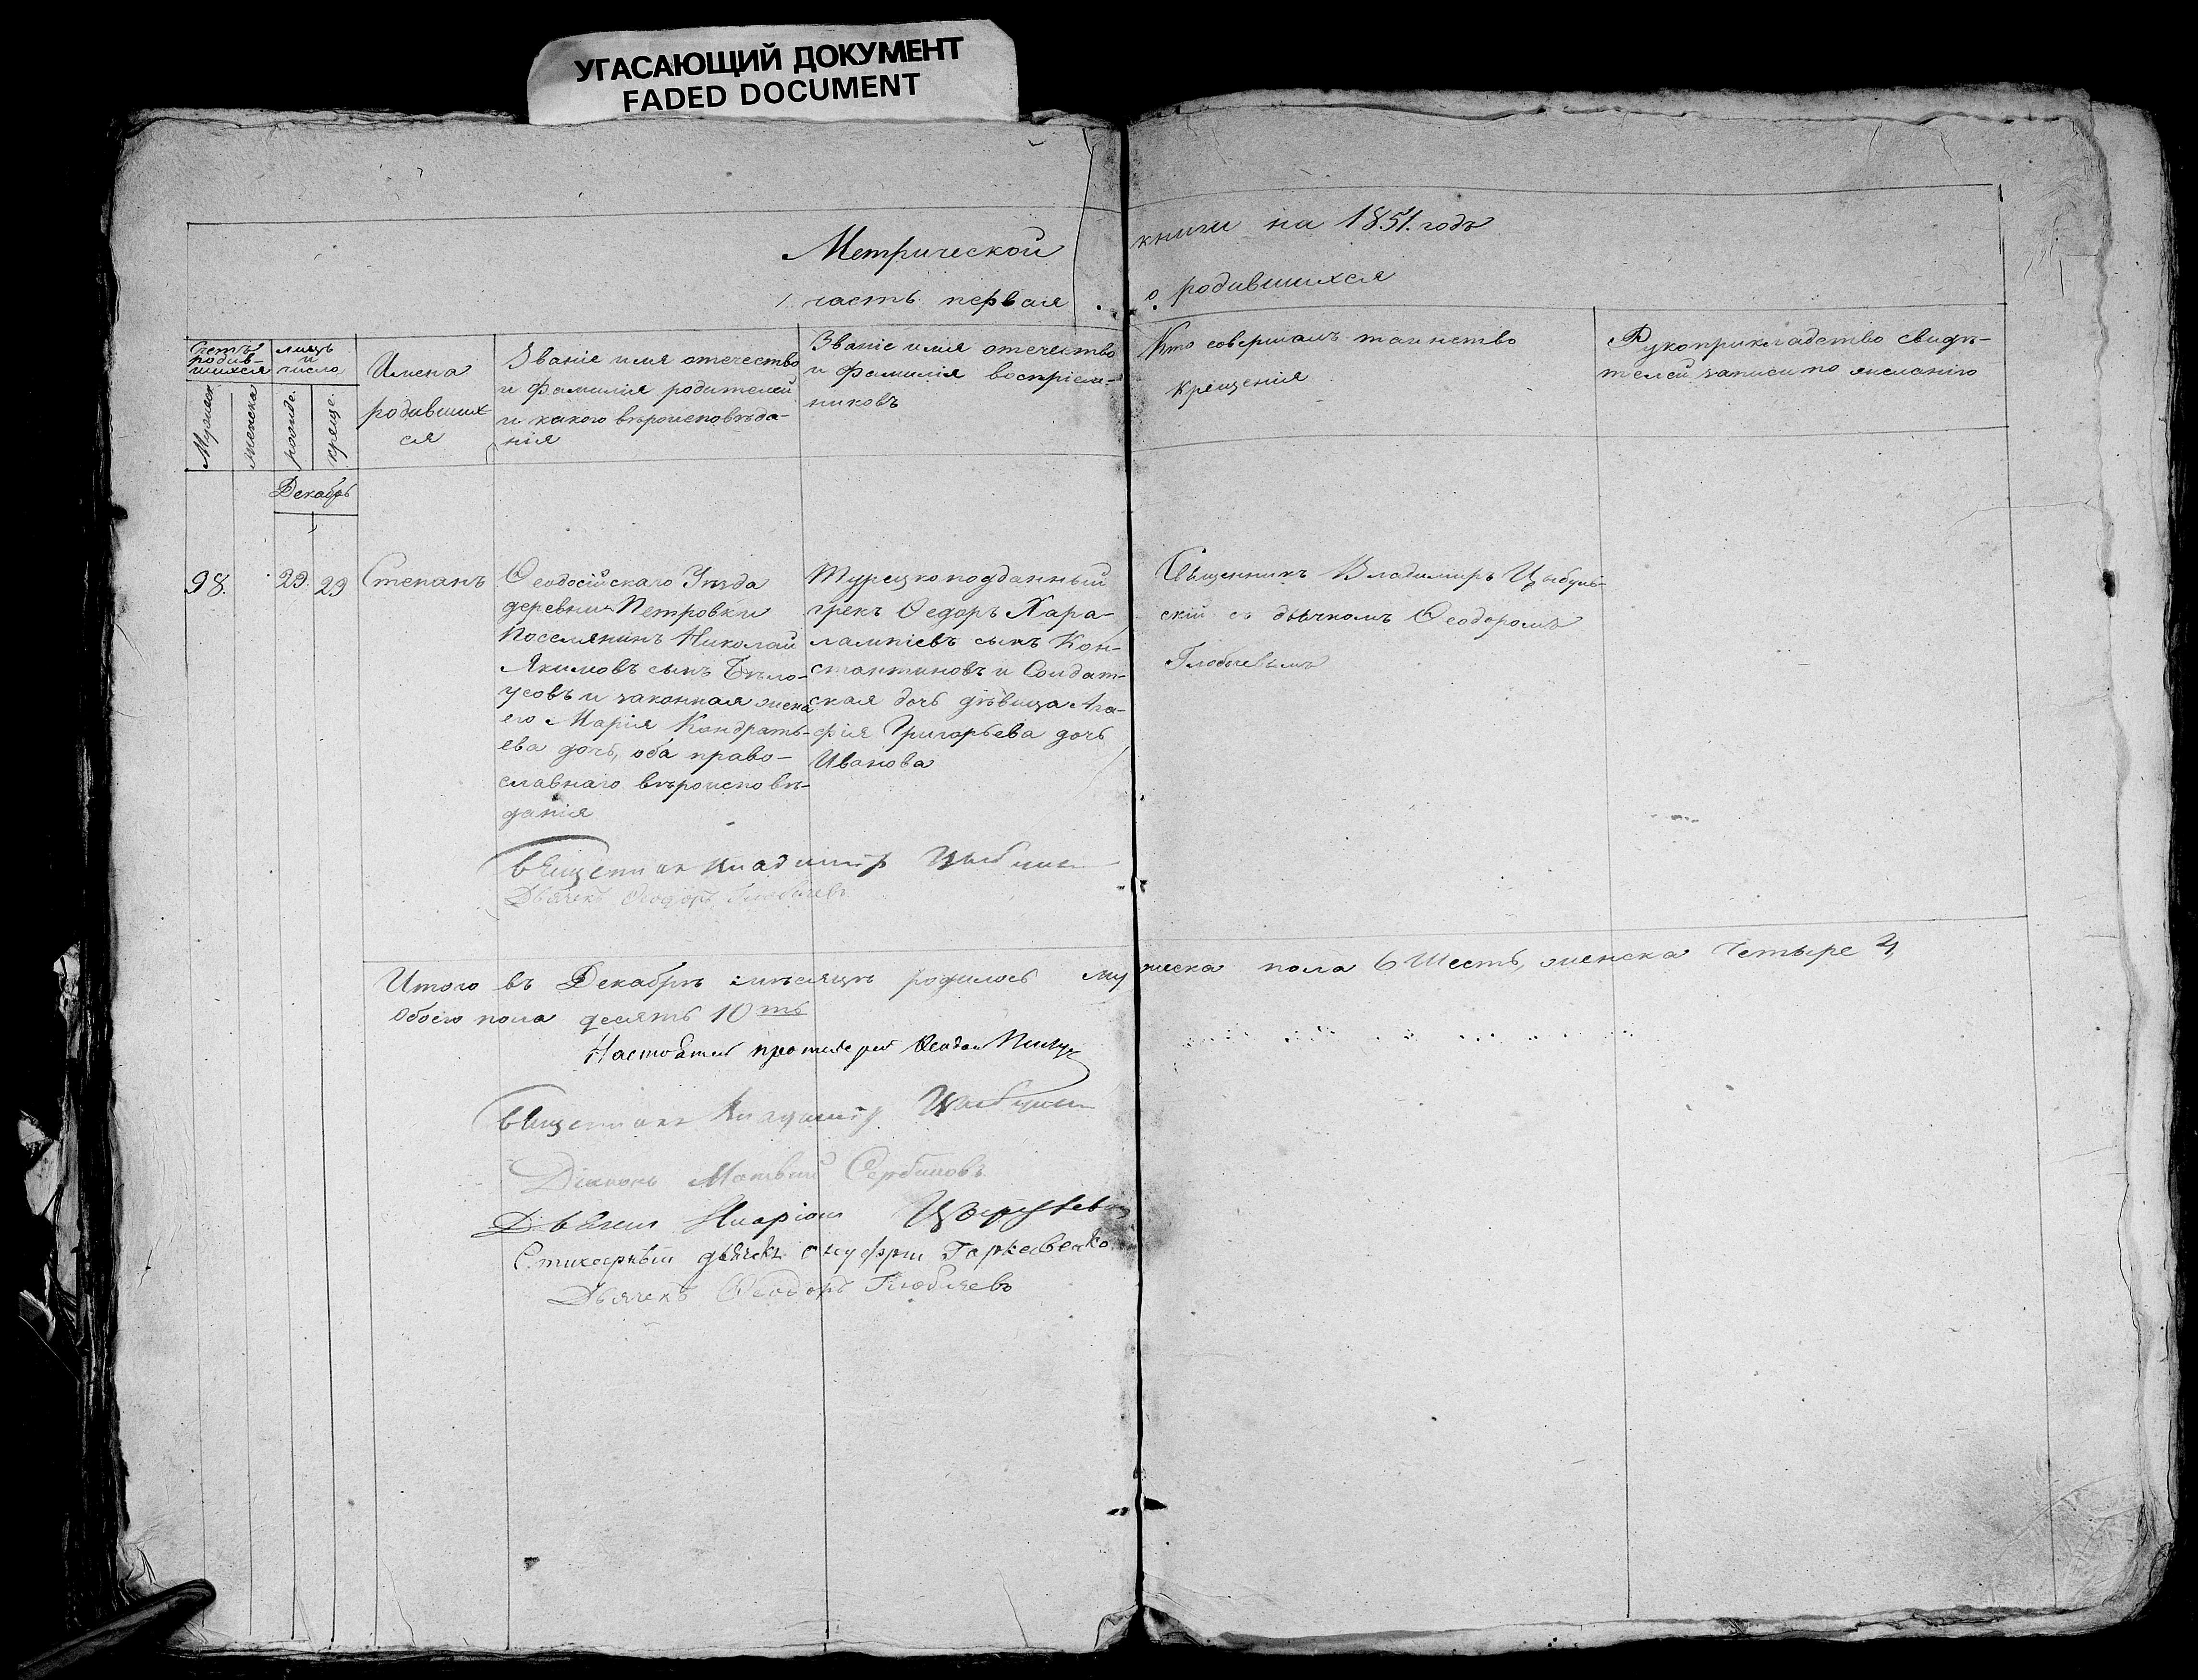 УГАСАЮЩИЙ ДОКУМЕНТ
FADED DOCUMENT
Метрической книги на 1851. годъ
часть первая о родившихся
Счетъ родив-шихся
Мужска
женска
мцъ и число
рожде.
креще.
Имена
родивших
ся
Званіе имя отечество
и фамилія родителей
и какого вѣроисповѣда-
нія
Званіе имя отечество
и фамилія воспріем-
никовъ
Кто совершалъ таинство
крещенія
Рукоприкладство свидѣ-
телей записи по желанію
Декабрь
98.
29. 29
Степанъ
Ѳеодосійскаго Уѣзда
деревни Петровки
Поселянинъ Николай
Якимовъ сынъ Бѣло-
усовъ и законная жена
его Марія Кондрать-
ева дочь, оба право-
славнаго вѣроисповѣ-
данія
Турецкоподданный
грекъ Ѳедоръ Хара-
лампіевъ сынъ Кон-
стантиновъ и Солдат-
ская дочь дѣвица Ага-
фія Григорьева дочь
Иванова
Священникъ Владимиръ Цыбуль-
скій съ дьячкомъ Ѳеодоромъ
Священник Владимір
Дьячекъ Ѳеодоръ
Итого въ Декабрѣ мѣсяцѣ родилось мужеска пола 6 Шесть, женска Четыре 4,
Обоего пола десять 10ть
Священник Владимір
Діаконъ Матвей Сербиновъ
Стихарный дьячекъ
Дьячекъ Ѳеодоръ